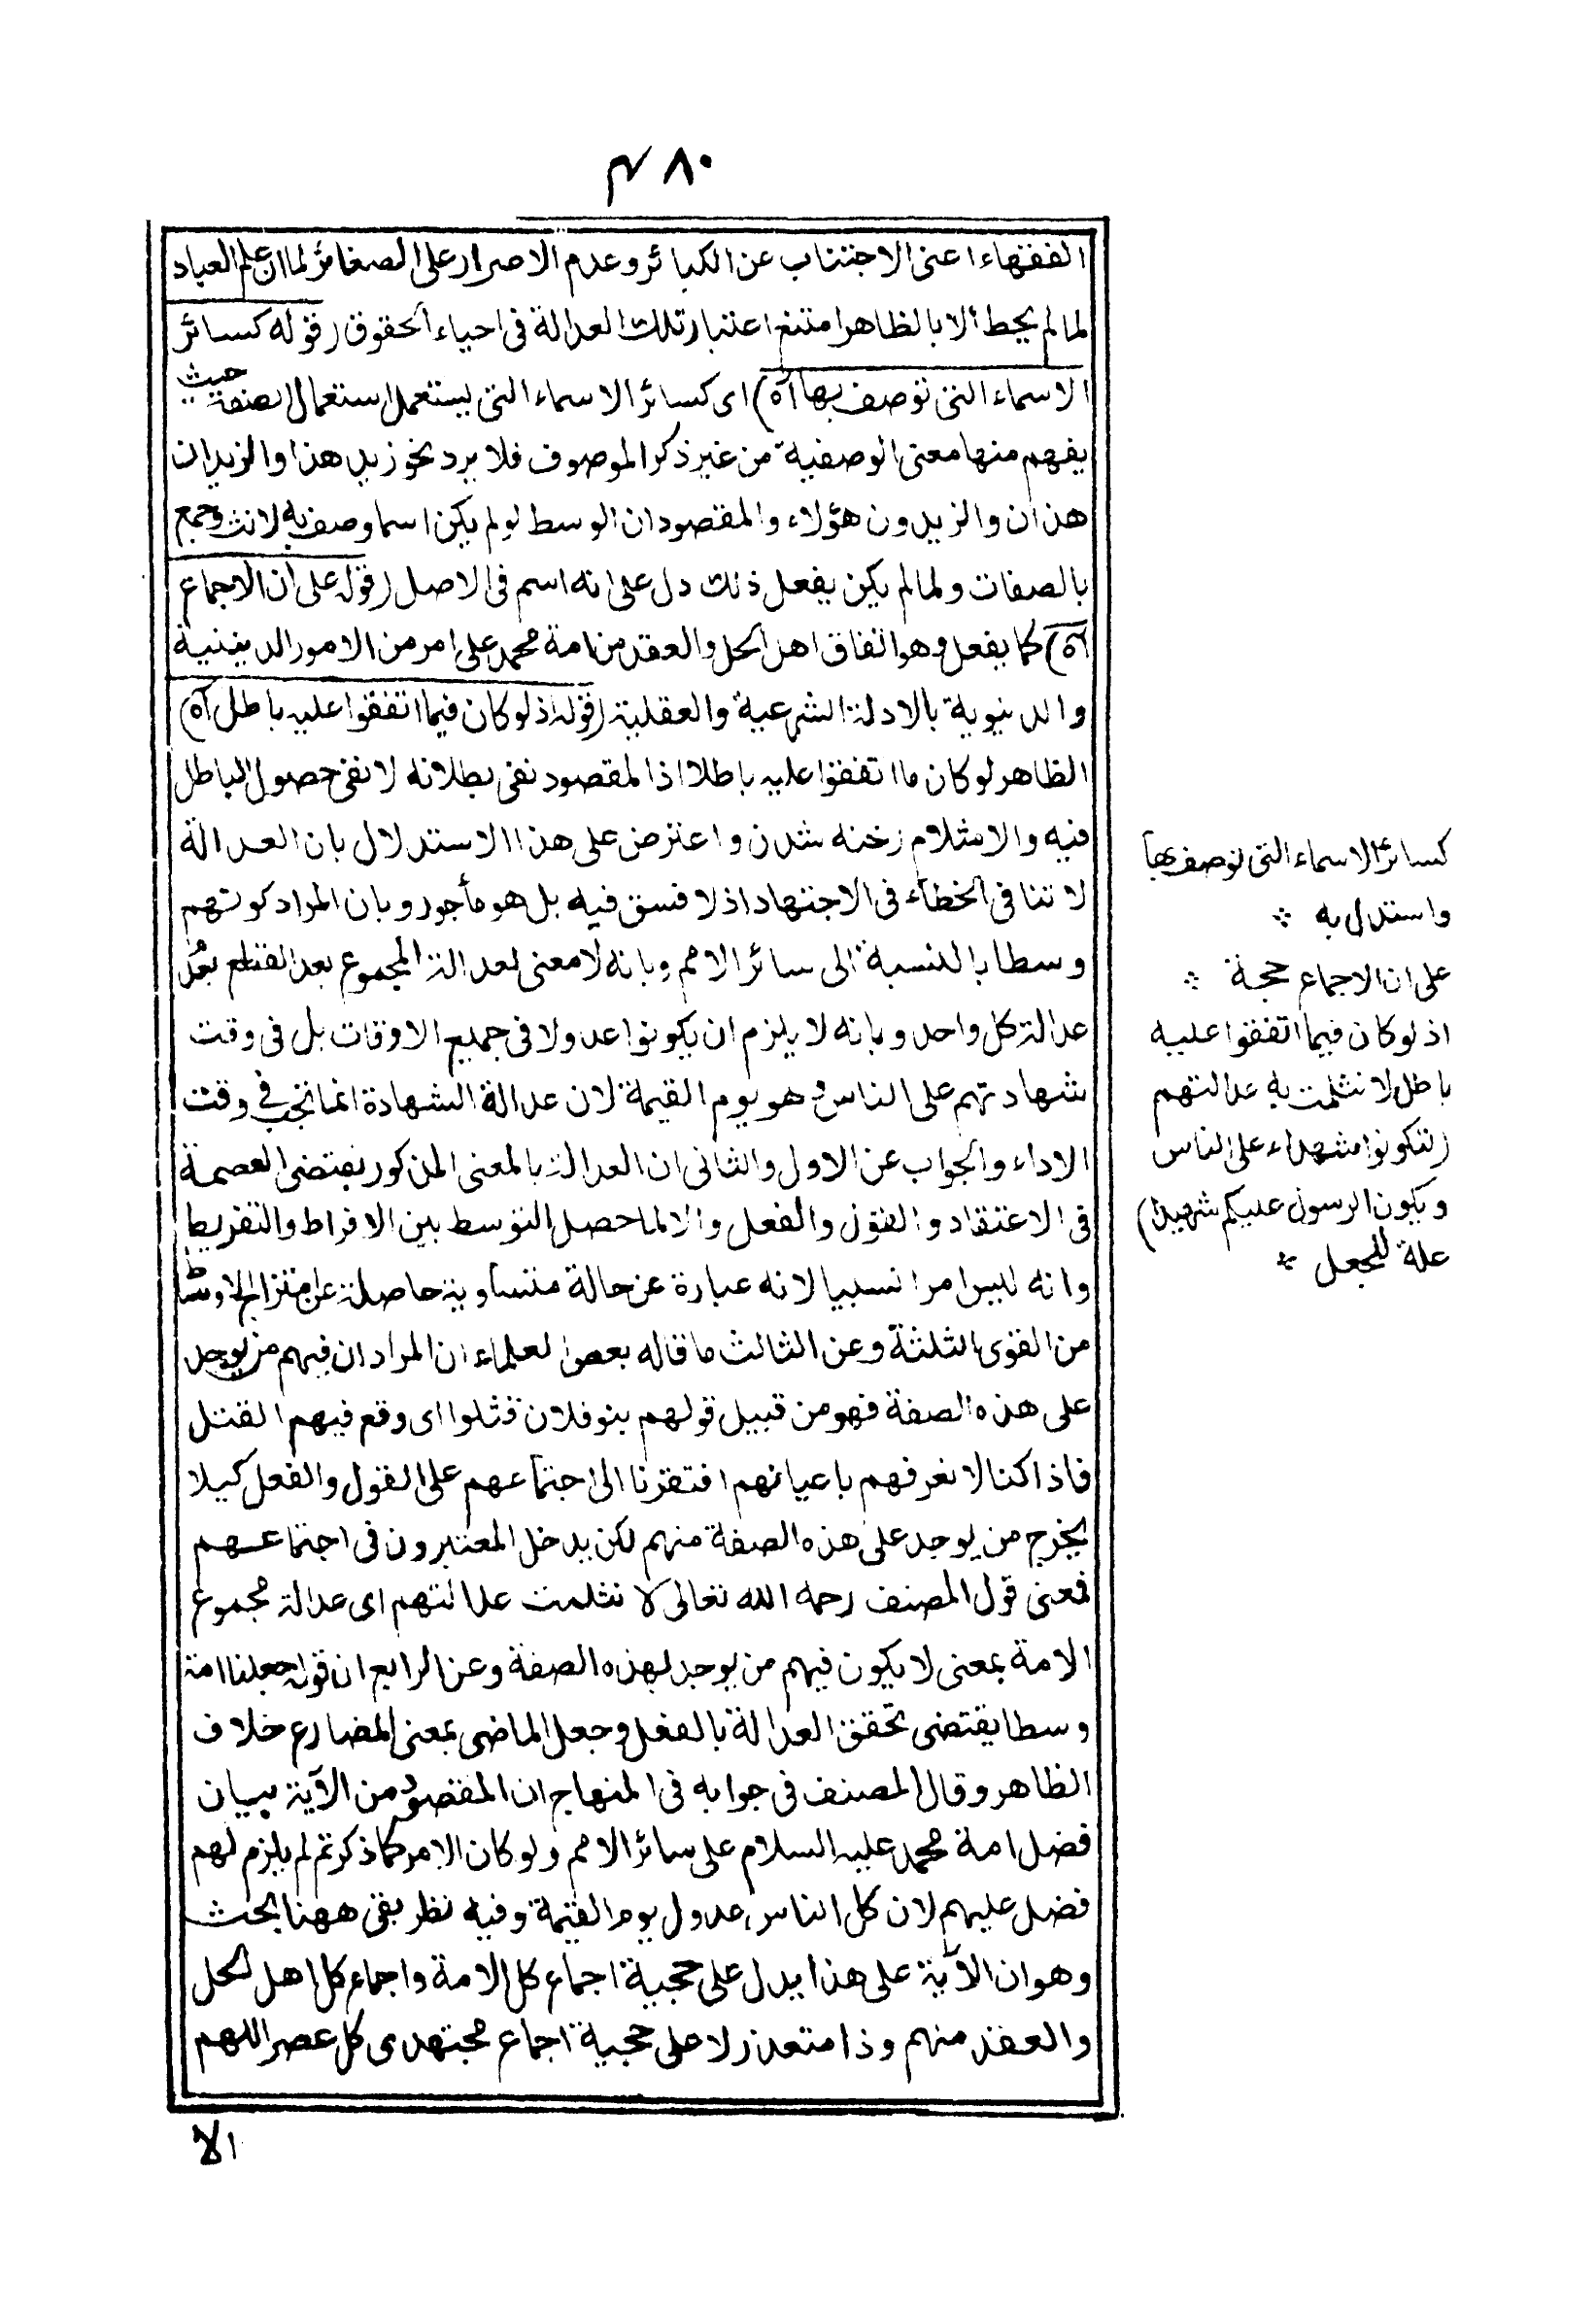 ۴۸۰
الفقهاء اعنى الاجتناب عن الكبائر وعدم الاصرار على الصغائر لما ان علم العباد
لما لم يحط الا بالظاهر امتنع اعتبار تلك العدالة فى احياء الحقوق (قوله كسائر
الاسماء التى توصف بها آه) اى كسائر الاسماء التى يستعمل استعمال الصفة حيث
يفهم منها معنى الوصفية من غير ذكر الموصوف فلا يرد نحو زيد هذا والزيدان
هذان والزيدون هؤلاء والمقصود ان الوسط لو لم يكن اسما وصف به لانث وجمع
بالصفات ولما لم يكن يفعل ذلك دل على انه اسم فى الاصل (قوله على ان الاجماع
آه) كما يفعل وهو اتفاق اهل الحل والعقد من امة محمد على امر من الامور الدينية
والدنيوية بالادلة الشرعية والعقلية (قوله اذ لو كان فيما اتفقوا عليه باطل آه)
الظاهر لو كان ما اتفقوا عليه باطلا اذ المقصود نفى بطلانه لا نفى حصول الباطل
فيه والانثلام رخنه شدن واعترض على هذا الاستدلال بان العدالة
لا تنافى الخطاء فى الاجتهاد اذ لا فسق فيه بل هو مأجور وبان المراد كونهم
وسطا بالنسبة الى سائر الامم وبانه لا معنى لعدالة المجموع بعد القطع بعدم
عدالة كل واحد وبانه لا يلزم ان يكونوا عدولا فى جميع الاوقات بل فى وقت
شهادتهم على الناس وهو يوم القيمة لان عدالة الشهادة انما تجب فى وقت
الاداء والجواب عن الاول والثانى ان العدالة بالمعنى المذكور يقتضى العصمة
فى الاعتقاد والقول والفعل والا لما حصل التوسط بين الافراط والتفريط
وانه ليس امرا نسبيا لانه عبارة عن حالة متساوية حاصلة عن امتزاج الاوساط
من القوى الثلثة وعن الثالث ما قاله بعض العلماء ان المراد ان فيهم من يوجد
على هذه الصفة فهو من قبيل قولهم بنو فلان قتلوا اى وقع فيهم القتل
فاذا كنا لا نعرفهم باعيانهم افتقرنا الى اجتماعهم على القول والفعل كيلا
يخرج من يوجد على هذه الصفة منهم لكن يدخل المعتبرون فى اجتماعهم
فمعنى قول المصنف رحمه الله تعالى لا نثلمت عدالتهم اى عدالة مجموع
الامة بمعنى لا يكون فيهم من يوجد بهذه الصفة وعن الرابع ان قوله جعلنا امة
وسطا يقتضى تحقق العدالة بالفعل وجعل الماضى بمعنى المضارع خلاف
الظاهر وقال المصنف فى جوابه فى المنهاج ان المقصود من الآية بيان
فضل امة محمد عليه السلام على سائر الامم ولو كان الامر كما ذكرتم لم يلزم لهم
فضل عليهم لان كل الناس عدول يوم القيمة وفيه نظر بقى ههنا بحث
وهو ان الآية على هذا يدل على حجية اجماع كل الامة واجماع كل اهل الحل
والعقد منهم وذا متعذر لا على حجية اجماع مجتهدى كل عصر اللهم
الا
كسائر الاسماء التى توصف بها
واستدل به ∴
على ان الاجماع حجة ∴
اذ لو كان فيما اتفقوا عليه
باطل لانثلمت به عدالتهم
(لتكونوا شهداء على الناس
ويكون الرسول عليكم شهيدا)
علة للجعل ∴